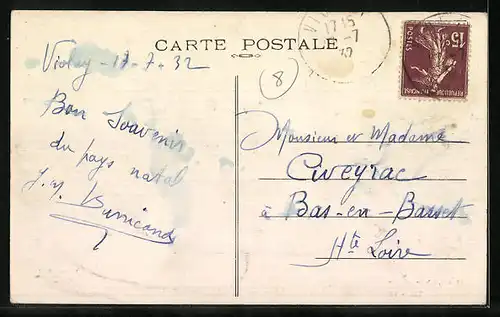 CARTE POSTALE
17 15
-7
15c
POSTES
REPUBLIQUE FRANÇAISE
8
Violay - 17-7-32
Bon Souvenir
du pays natal
J. M.
Monsieur et Madame
Civeyrac
à Bas-en-Basset
Hte Loire